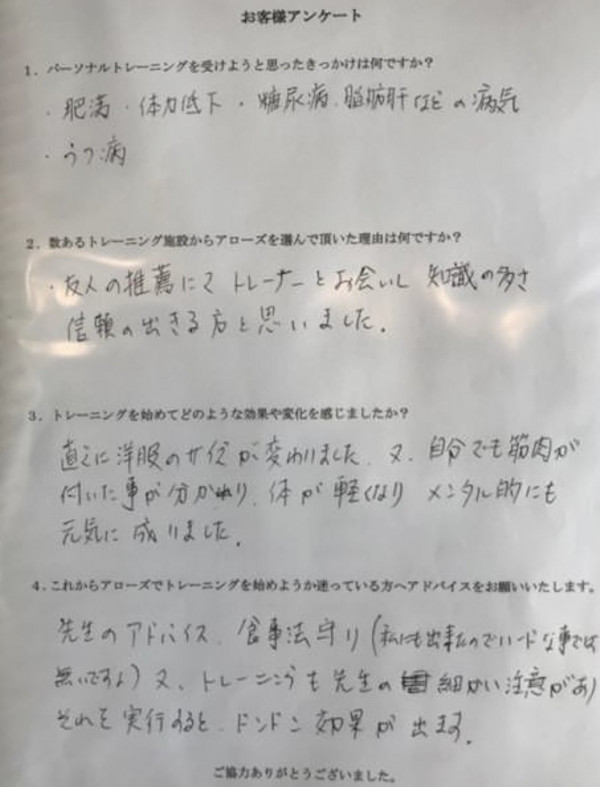 お客様アンケート
1．パーソナルトレーニングを受けようと思ったきっかけは何ですか？
・肥満・体力低下・糖尿病、脂肪肝などの病気
・うつ病
2．数あるトレーニング施設からアローズを選んで頂いた理由は何ですか？
・友人の推薦にてトレーナーとお会いし 知識の多さ
信頼の出きる方と思いました。
3．トレーニングを始めてどのような効果や変化を感じましたか？
直ぐに洋服のサイズが変わりました、又、自分でも筋肉が
付いた事が分かり、体が軽くなり メンタル的にも
元気に成りました。
4．これからアローズでトレーニングを始めようか迷っている方へアドバイスをお願いいたします。
先生のアドバイス、食事法守り（私にも出来たのでハードな事では
無いですよ）又、トレーニングも先生の細かい注意があり
それを実行すると、ドンドン効果が出ます。
ご協力ありがとうございました。